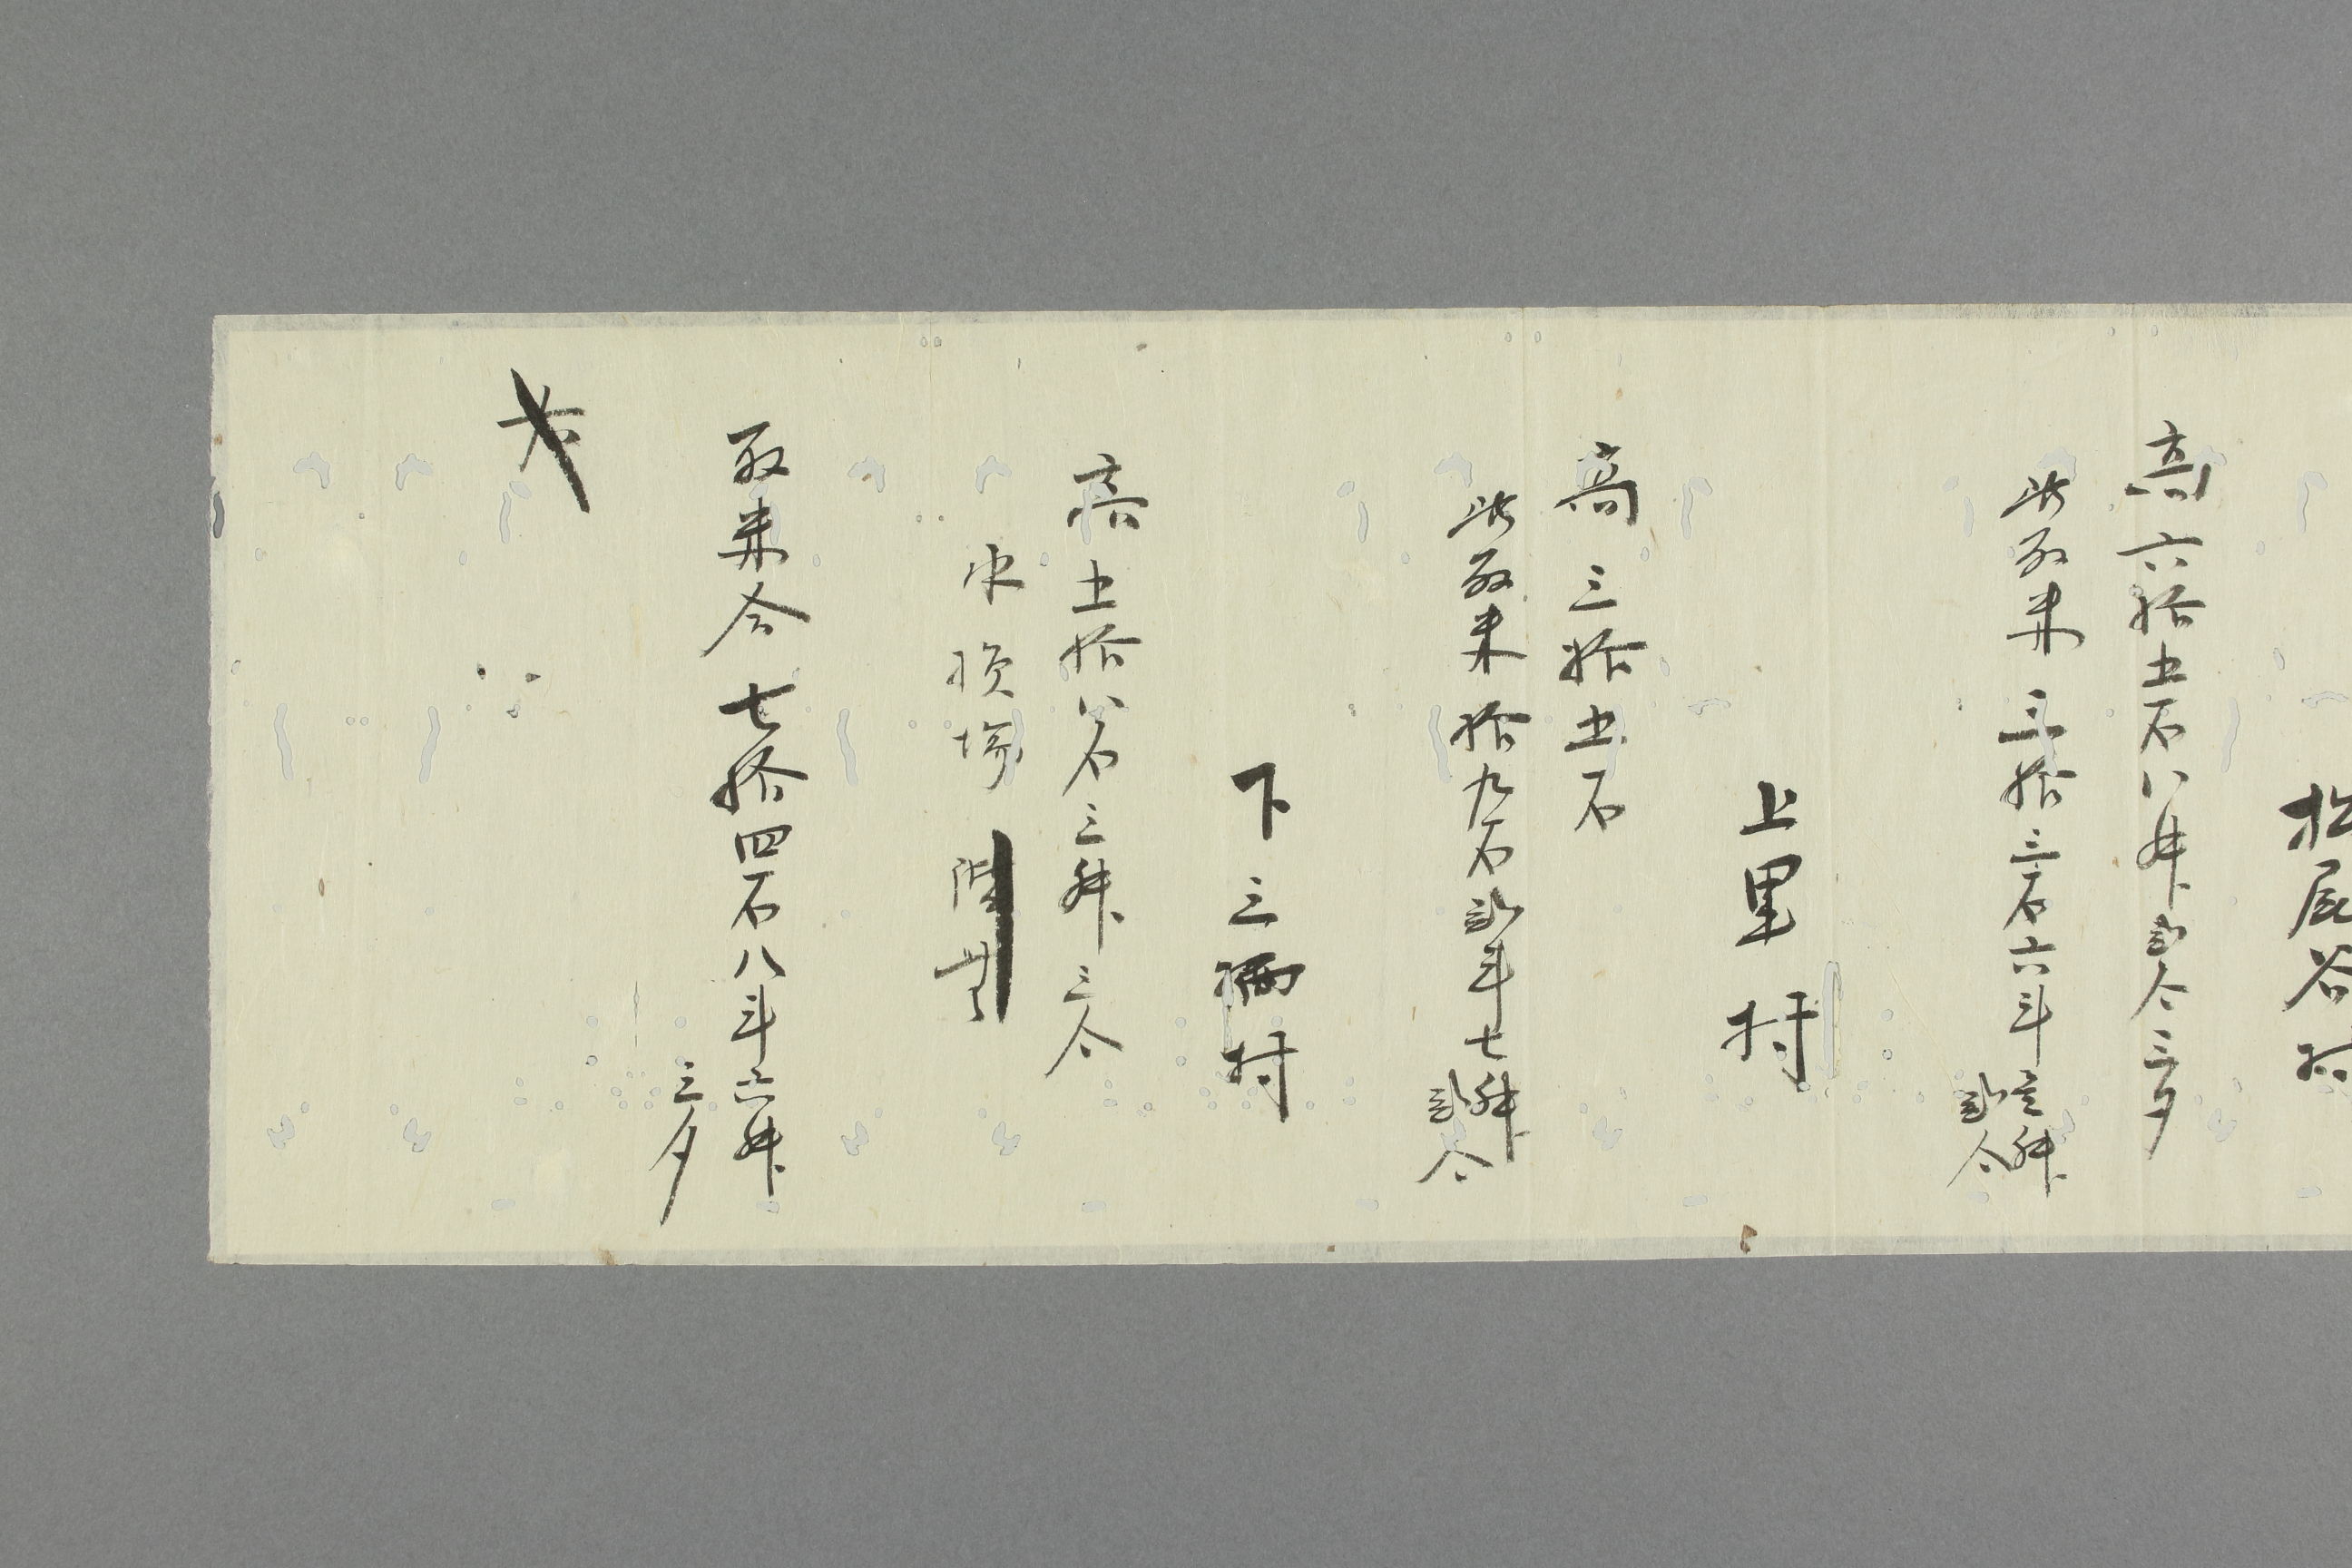 松尾谷村
高六拾五石八升弐合三夕
此取米三拾三石六斗壱升
弐合
上里村
高三拾五石
此取米拾九石弐斗七升
弐合
下三栖村
高五拾八石三升三合
水損場
取米合七拾四石八斗六升
三夕